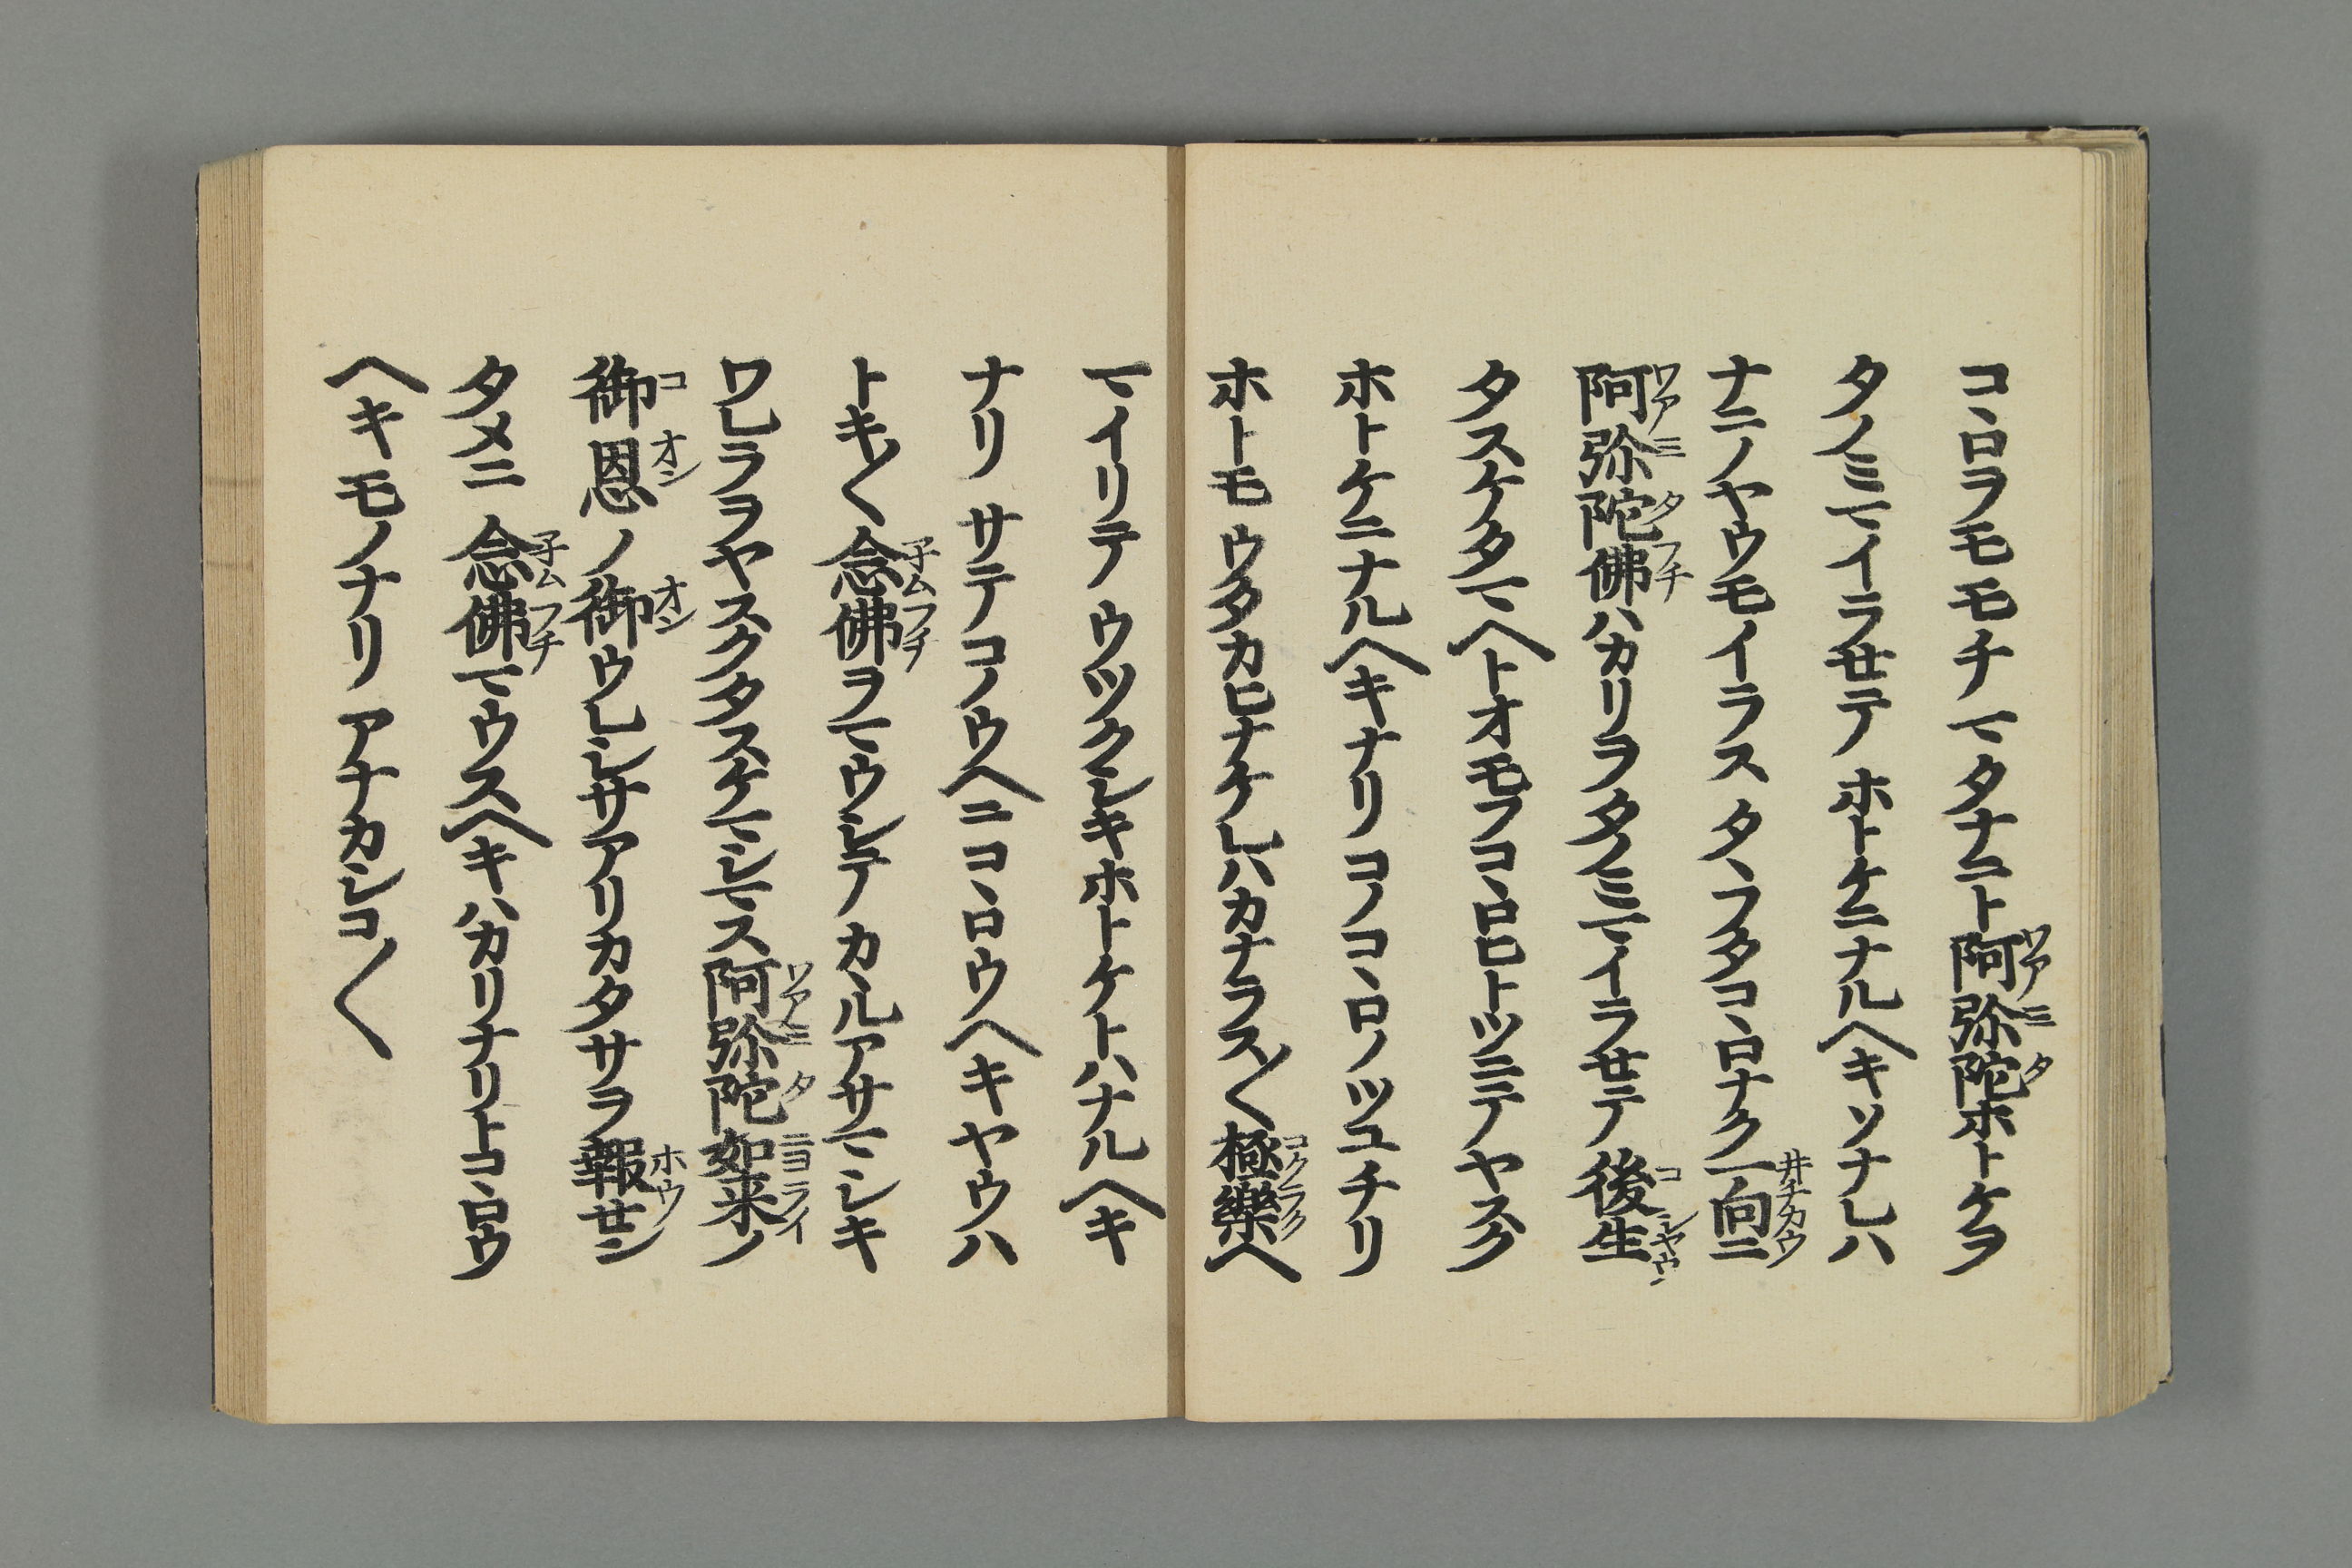 コヽロヲモモチマタナニト阿弥陀ホトケヲ
タノミマイラセテホトケニナルヘキソナレハ
ナニノヤウモイラスタヽフタコヽロナク一向ニ
阿弥陀佛ハカリヲタノミマイラセテ後生
タスケタマヘトオモフコヽロヒトツニテヤスク
ホトケニナルヘキナリコノコヽロノツユチリ
ホトモウタカヒナケレハカナラス〱極樂ヘ
マイリテウツクシキホトケトハナルヘキ
ナリサテコノウヘニコヽロウヘキヤウハ
トキ〱念佛ヲマウシテカヽルアサマシキ
ワレラヲヤスクタスケマシマス阿弥陀如来ノ
御恩ノ御ウレシサアリカタサヲ報セン
タメニ念佛マウスヘキハカリナリトコヽロウ
ヘキモノナリアナカシコ〱